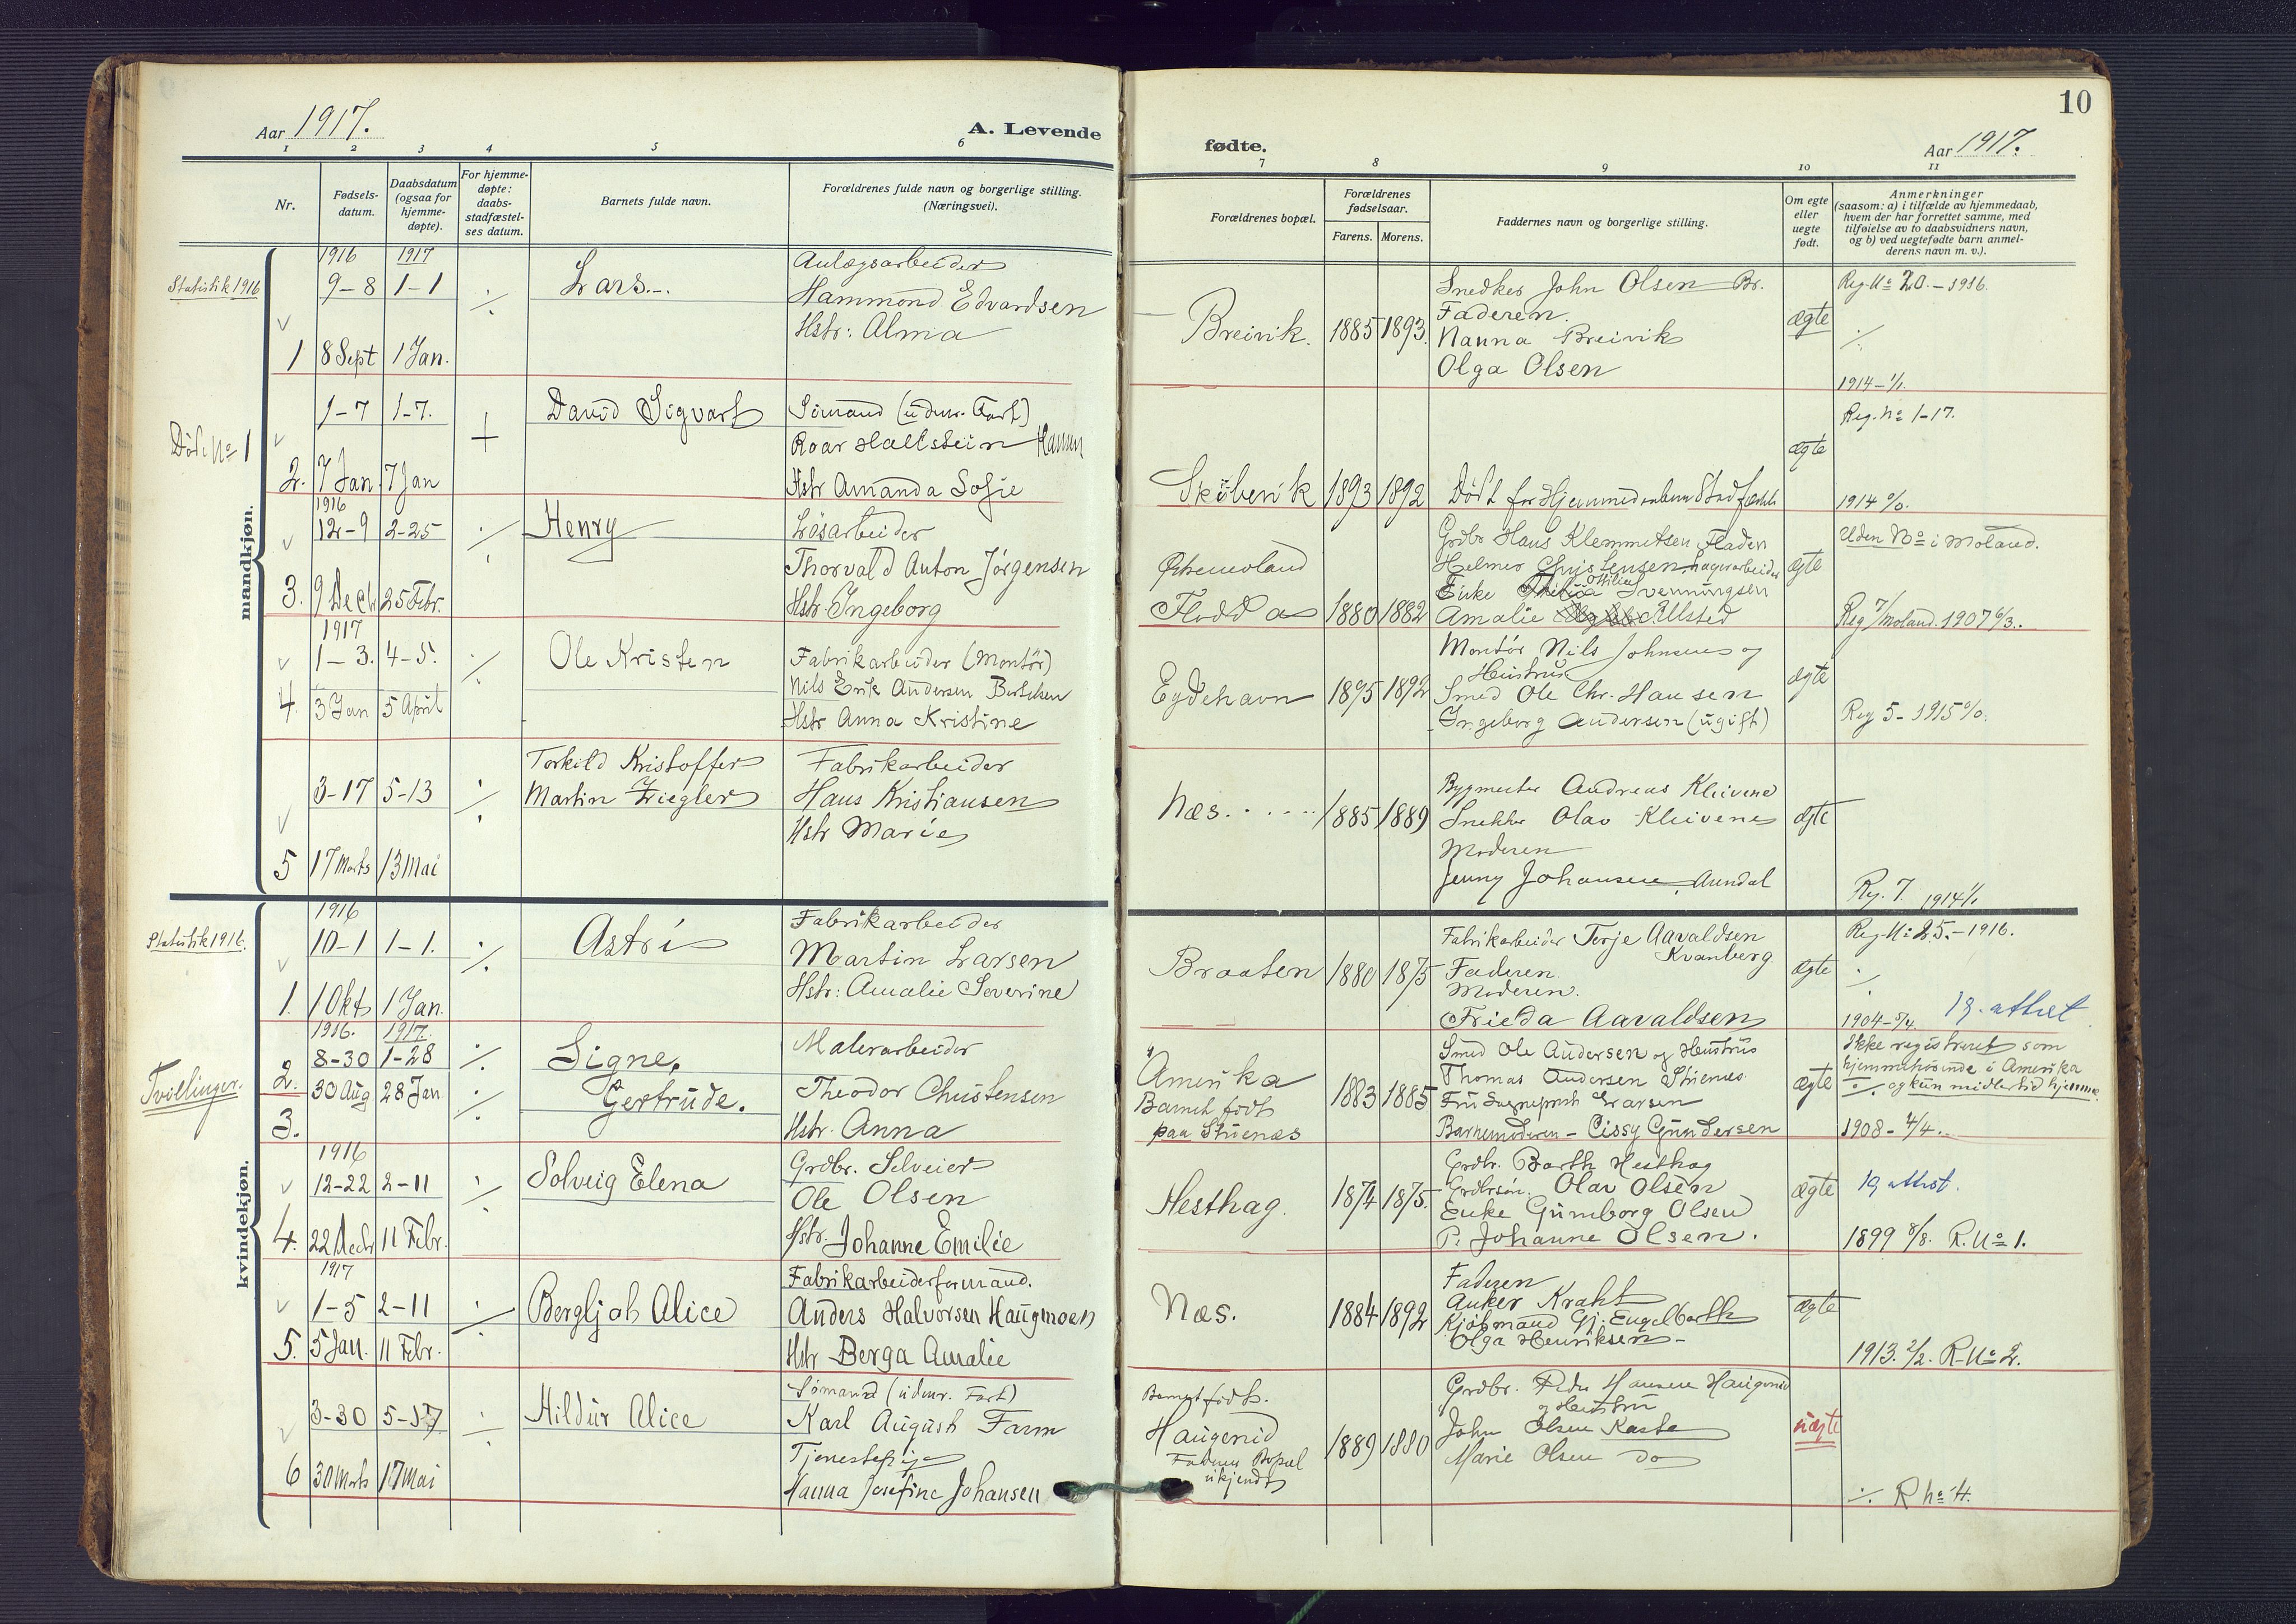 Aar 1917.
A. Levende
1 2 3 4 5 6
Nr.
Fødsels-
datum.
Daabsdatum
(ogsaa for
hjemme-
døpte).
For hjemme-
døpte:
daabs-
stadfæstel-
ses datum.
Barnets fulde navn.
Forældrenes fulde navn og borgerlige stilling.
(Næringsvei).
mandkjøn.
Statistik 1916
1916 1917
9-8 1-1
1 8 Sept 1 Jan.
Lars
Anlægsarbeider
Hammond Edvardsen
Hstr: Alma
Død No 1
1-7 1-7.
2. 7 Jan 7 Jan
David Sigvart
Sømand (udenr. Fart)
Roar Hallstein Hamm
Hstr Amanda Sofie
1916
12-9 2-25
3. 9 Decb 25 Febr.
Henry
Løsarbeider
Thorvald Anton Jørgensen
Hstr. Ingeborg
1917
1-3. 4-5.
4. 3 Jan 5 April
Ole Kristen
Fabrikarbeider (Montør)
Nils Erik Andersen Bertelsen
Hstr Anna Kristine
3-17 5-13
5 17 Marts 13 Mai
Torkild Kristoffer
Martin Ziegler
Fabrikarbeider
Hans Kristiansen
Hstr Marie
kvindekjøn.
Statistik 1916.
1916
10-1 1-1.
1. 1 Okt 1 Jan.
Astri
Fabrikarbeider
Martin Larsen
Hstr: Amalie Severine
Tvillinger.
1916. 1917.
8-30 1-28
2. 30 Aug 28 Jan
3.
Signe,
Gertrude.
Malerarbeider
Theodor Christensen
Hstr. Anna
1916
12-22 2-11
4. 22 Decb 11 Febr.
Solveig Elena
Grdbr. Selveier
Ole Olsen
Hstr. Johanne Emilie
1917
1-5 2-11
5. 5 Jan. 11 Febr.
Bergljot Alice
Fabrikarbeiderformand.
Anders Halvorsen Haugmoen
Hstr Berga Amalie
3-30 5-17
6 30 Marts 17 Mai
Hildur Alice
Sømand (udenr. Fart)
Karl August Farm
Tjenestepige
Hanna Josefine Johansen
10
fødte.
Aar 1917.
7 8 9 10 11
Forældrenes bopæl.
Forældrenes
fødselsaar.
Farens. Morens.
Faddernes navn og borgerlige stilling.
Om egte
eller
uegte
født.
Anmerkninger
(saasom: a) i tilfælde av hjemmedaab,
hvem der har forrettet samme, med
tilføielse av to daabsvidners navn,
og b) ved uegtefødte barn anmel-
derens navn m. v.).
Breivik. 1885 1893.
Snedker John Olsen Br.
Faderen.
Nanna Breivik
Olga Olsen
ægte
Reg. No 20.-1916.
1914-1/1.
1893 1892
ægte
Reg. No 1-17.
1914 0/0.
Flodda 1880 1882
Grdbr Hans Klemmetsen Fladen
Helmer Christensen
Enke Ottilia Svenningsen
Amalie
ægte
Uden No i Moland.
Reg 7/Moland. 1907 6/3.
Eydehavn 1895 1892
Montør Nils Johnsen og
Hustru
Smed Ole Chr. Hansen
Ingeborg Andersen (ugift)
ægte
Reg 5-1915 0/0.
Næs. 1885 1889
Bygmester Andreas Kleivene
Snekker Olav Kleivene
Moderen
Jenny Johansen, Arendal
ægte
Reg. 7. 1914 1/1
Braaten 1880 1875
Fabrikarbeider Terje Aavaldsen
Kvanberg
Faderen.
Moderen.
Frieda Aavaldsen
ægte
Reg. No 25.-1916.
1904-5/4.
19. attest
Amerika
Barnet født
paa Stuenæs
1883 1885
Smed Ole Andersen og Hustru
Thomas Andersen Stuenes
Fru Sogneprest Larsen
Barnemoderen - Cissy Gundersen
ægte
Ikke registreret som
hjemmehørende i Amerika
og kun midlertid hjemme.
1908-4/4.
Hesthag. 1874 1875.
Grdbr. Barth Hesthag
Grdbrsøn. Olav Olsen
Enke Gunborg Olsen
P. Johanne Olsen.
ægte
19 attest.
1899 8/8. R. No 1.
Næs. 1884 1892
Faderen
Anker Kraht
Kjøbmand Gj. Engelbarth
Olga Henriksen
ægte
1913. 2/2. R. No 2.
Barnet født.
Haugenid
Faderens Bopæl
ukjendt
1889 1880
Grdbr. Peder Hansen Haugenid
og Hustru
John Olsen Kaste
Marie Olsen do
uægte
R No 4.